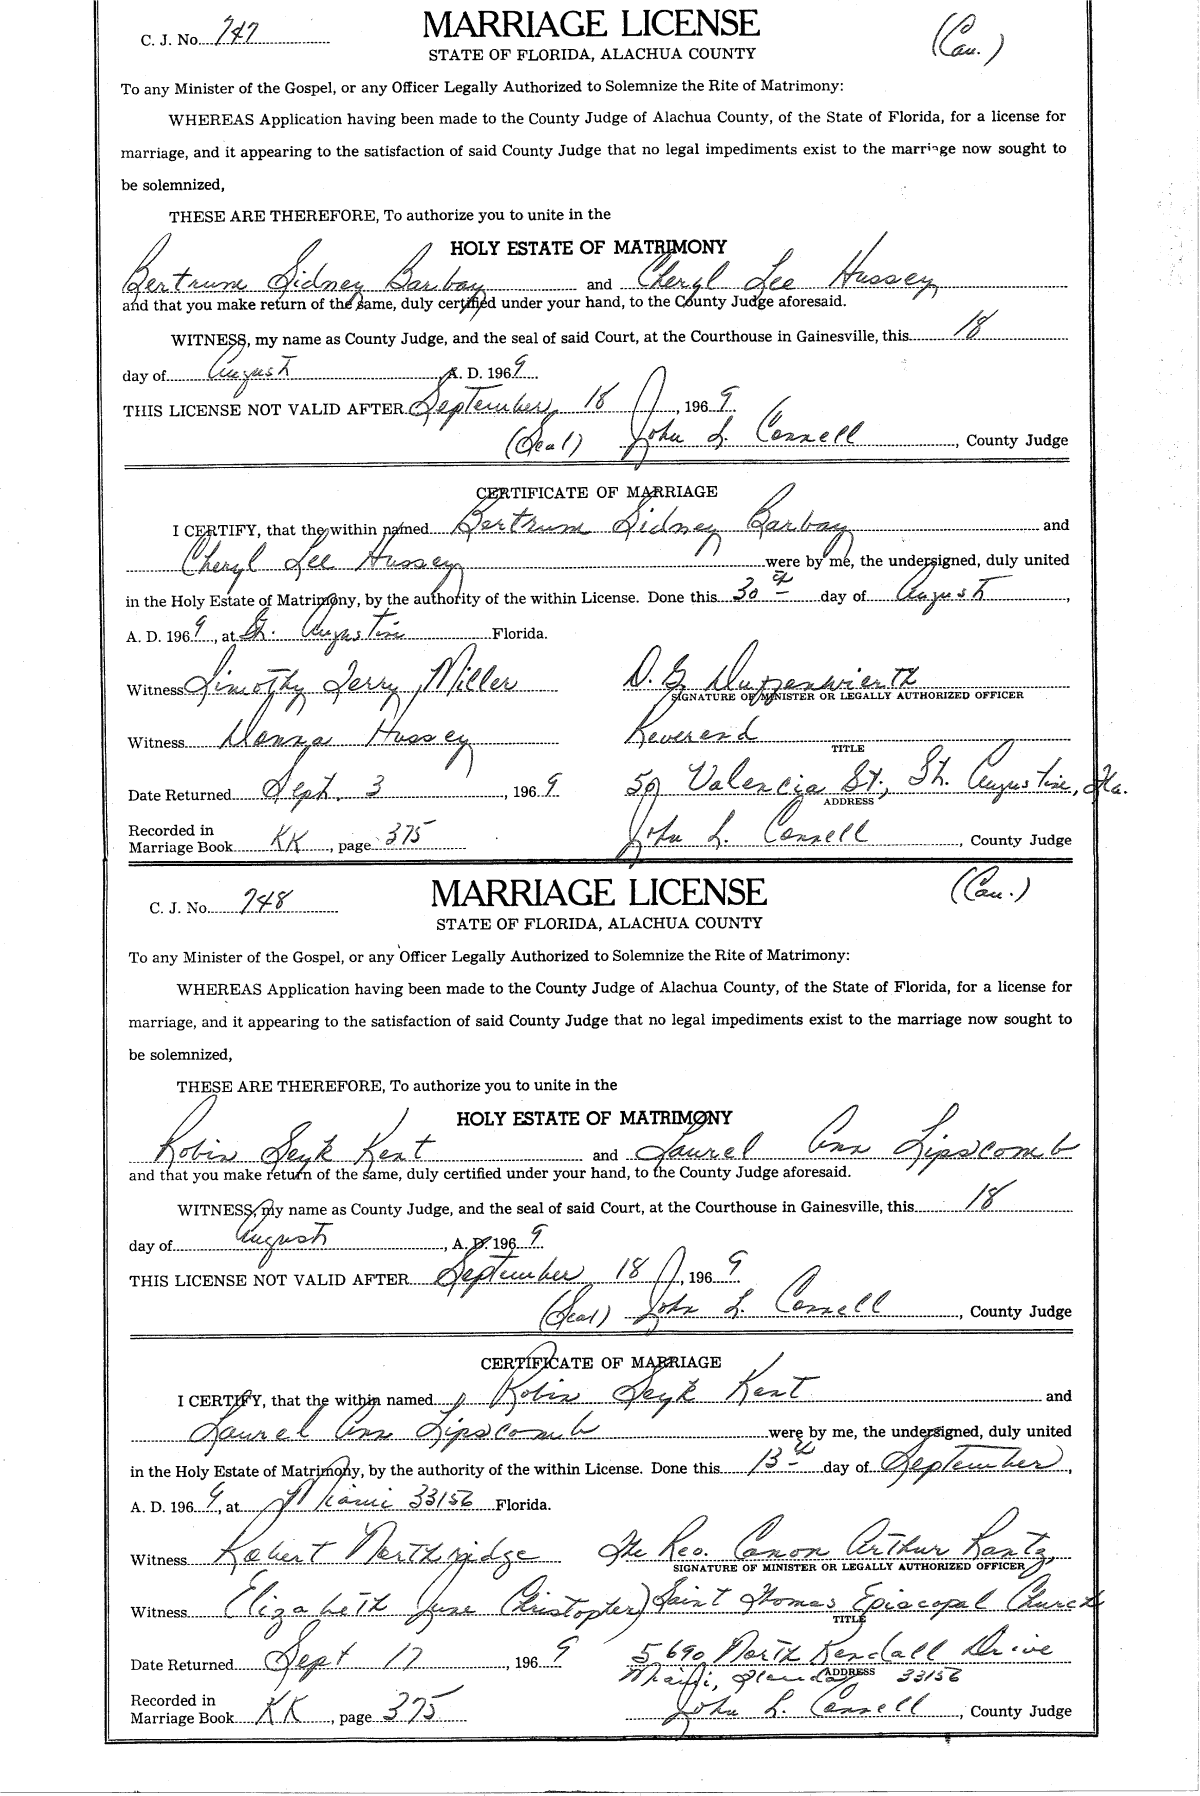 C. J. No. 747
MARRIAGE LICENSE
(Cau.)
STATE OF FLORIDA, ALACHUA COUNTY
To any Minister of the Gospel, or any Officer Legally Authorized to Solemnize the Rite of Matrimony:
WHEREAS Application having been made to the County Judge of Alachua County, of the State of Florida, for a license for
marriage, and it appearing to the satisfaction of said County Judge that no legal impediments exist to the marriage now sought to
be solemnized,
THESE ARE THEREFORE, To authorize you to unite in the
HOLY ESTATE OF MATRIMONY
Bertrum Sidney Barbay and Cheryl Lee Hussey
and that you make return of the same, duly certified under your hand, to the County Judge aforesaid.
WITNESS, my name as County Judge, and the seal of said Court, at the Courthouse in Gainesville, this 18
day of August A. D. 1969
THIS LICENSE NOT VALID AFTER September 18, 1969
(Seal) John L. Connell, County Judge
CERTIFICATE OF MARRIAGE
I CERTIFY, that the within named Bertrum Sidney Barbay and
Cheryl Lee Hussey were by me, the undersigned, duly united
in the Holy Estate of Matrimony, by the authority of the within License. Done this 30th day of August,
A. D. 1969, at St. Augustine Florida.
Witness Timothy Jerry Miller D. G.
SIGNATURE OF MINISTER OR LEGALLY AUTHORIZED OFFICER
Witness Donna Hussey Reverend
TITLE
Date Returned Sept. 3, 1969 50 Valencia St., St. Augustine, Fla.
ADDRESS
Recorded in
Marriage Book KK, page 375 John L. Connell, County Judge
C. J. No. 748
MARRIAGE LICENSE
(Cau.)
STATE OF FLORIDA, ALACHUA COUNTY
To any Minister of the Gospel, or any Officer Legally Authorized to Solemnize the Rite of Matrimony:
WHEREAS Application having been made to the County Judge of Alachua County, of the State of Florida, for a license for
marriage, and it appearing to the satisfaction of said County Judge that no legal impediments exist to the marriage now sought to
be solemnized,
THESE ARE THEREFORE, To authorize you to unite in the
HOLY ESTATE OF MATRIMONY
Robin Seyk Kent and Laurel Ann Lipscomb
and that you make return of the same, duly certified under your hand, to the County Judge aforesaid.
WITNESS, my name as County Judge, and the seal of said Court, at the Courthouse in Gainesville, this 18
day of August, A. D. 1969
THIS LICENSE NOT VALID AFTER September 18, 1969
(Seal) John L. Connell, County Judge
CERTIFICATE OF MARRIAGE
I CERTIFY, that the within named Robin Seyk Kent and
Laurel Ann Lipscomb were by me, the undersigned, duly united
in the Holy Estate of Matrimony, by the authority of the within License. Done this 13th day of September,
A. D. 1969, at Miami 33156 Florida.
Witness Robert Northridge The Rev. Canon Arthur Rantz
SIGNATURE OF MINISTER OR LEGALLY AUTHORIZED OFFICER
Witness Elizabeth June Christopher) Saint Thomas Episcopal Church
TITLE
Date Returned Sept 17, 1969 5690 North Kendall Drive
Miami, Florida 33156
ADDRESS
Recorded in
Marriage Book KK, page 375 John L. Connell, County Judge